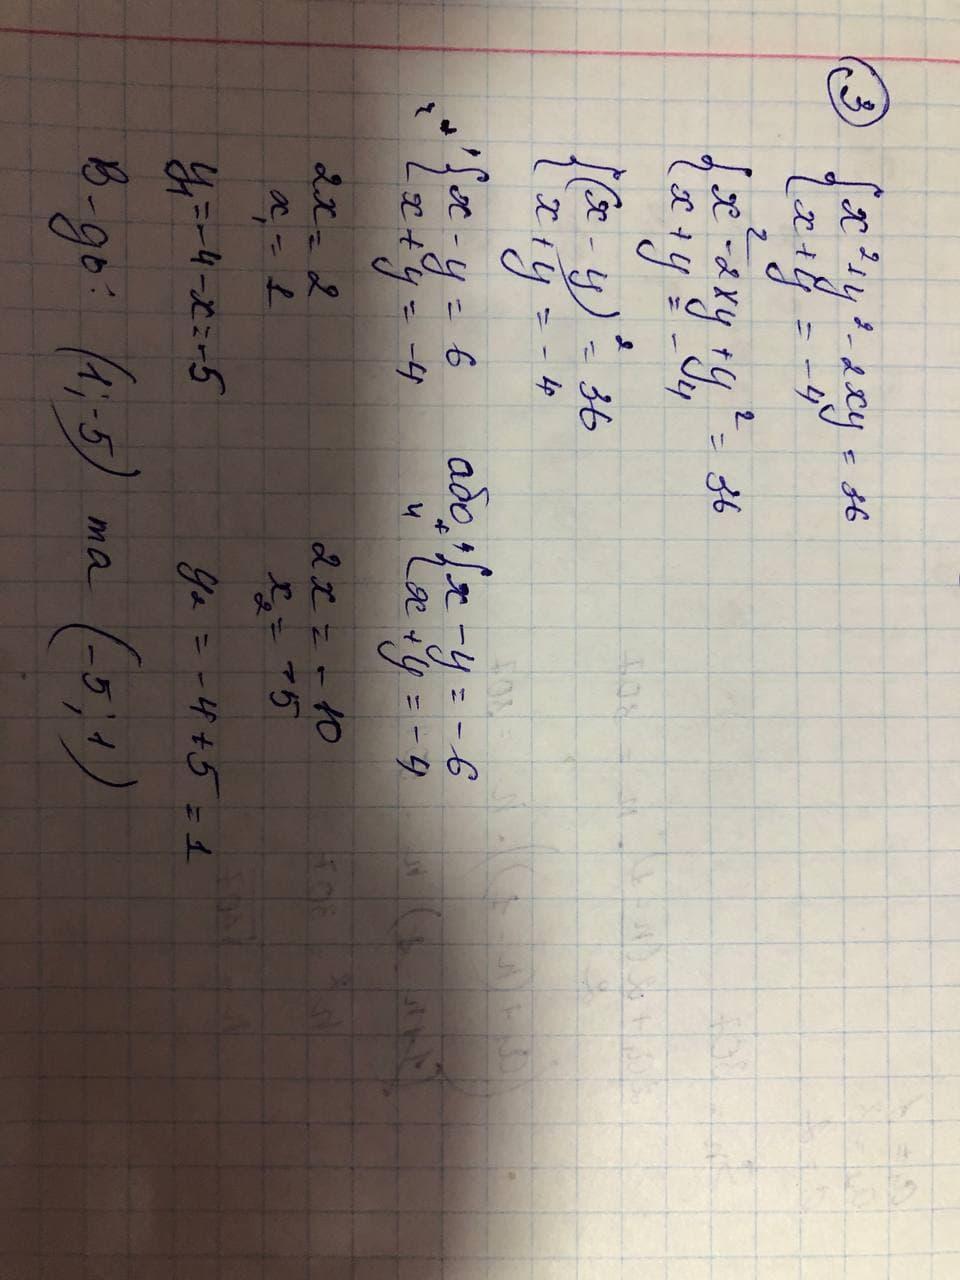 3
{ x² + y² - 2xy = 36
{ x + y = -4
{ x² - 2xy + y² = 36
{ x + y = -4
{ (x - y)² = 36
{ x + y = -4
{ x - y = 6 або { x - y = -6
{ x + y = -4 { x + y = -4
2x = 2 2x = -10
x₁ = 1 x₂ = -5
y₁ = -4 - x = -5 y₂ = -4 + 5 = 1
В-дь: (1; -5) та (-5; 1)